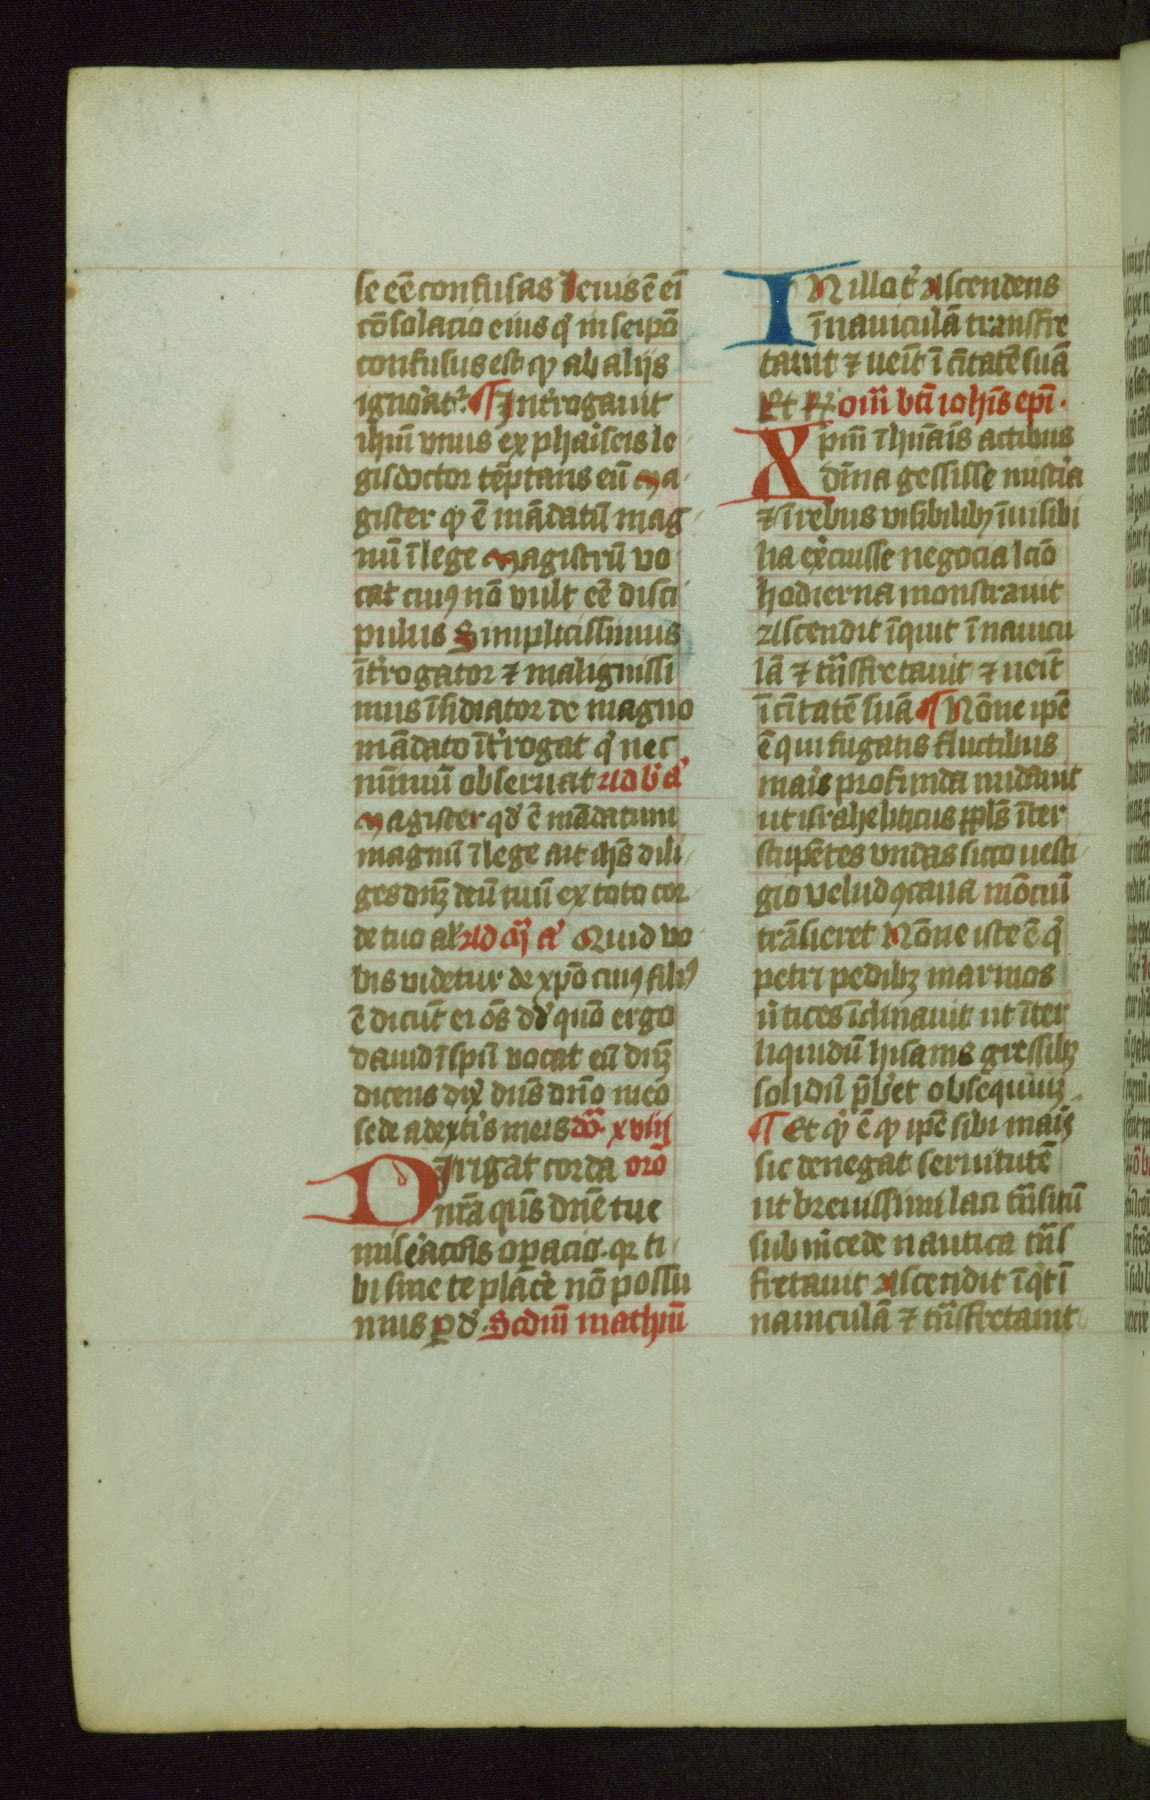 se eē confusas Ileuis ē eī
cōsolacio eius q̉ in seip̄o
confusus est qͥ ab alijs
ignoātͬ ¶ Int̉rogauit
ihm̄ vnus ex phaīseis le
gis doctor tēptans eū Ma
gister qͥ ē mādatū mag
nū ī lege Magistrū vo
cat cuiꝰ nō vult eē disci
pulus Simplicissimus
īt̉rogator ⁊ malignissi
mus īsidiator de magno
mādato īt̉rogat q̉ nec
mīmū obseruat Ad b̉ a̓
Magister qd̓ ē mādatum
magnū ī lege ait ih̄s dili
ges dn̄ꝫ deū tuū ex toto cor
de tuo al̓ Ad m̄ a̓ Quid vo
bis videtur de xp̄o cuiꝰ filiꝰ
ē dicūt ei ōs dd̓ quō ergo
dauid ī spū vocat eū dn̄ꝫ
dicens dix̓ dn̄s dn̄o meo
sede a dext̉s meis dō. xviij
DIrigat corda orō
nr̄a qs̄ dn̄e tue
mise̓acōis oꝑacio. qꝛ ti
bi sine te plac̄e nō possu
mus ꝑ d̓. Scdm̄ mathm̄
IN illo t̓ Ascendens
ī nauiculā transfre
tauit ⁊ ueīt ī cīitatē suā
Et R̵. om̄ bt̄i ioh̄is ep̄i.
Xpm̄ ī hūāis actibus
diīna gessisse mist̓ia
⁊ ī rebus visibilibꝫ īuisibi
lia exc̓uisse negocia lc̄io
hodierna monstrauit
Ascendit īquit ī nauicu
lā ⁊ tn̄sfretauit ⁊ ueīt
ī cīitatē suā ¶ Nōne ipē
ē qui fugatis fluctibus
mais̓ profunda nudauit
ut israheliticus ppl̄s īter
stupētes vndas sicco uesti
gio velud ꝯcaua mōtiū
trāsieret Nōne iste ē q̉
petri pedibꝫ marinos
v̓tices īclinauit ut īter
liquidū hūanis gressibꝫ
solidū p̄b̓et obseq̄uiuꝫ.
¶ Et qͥ ē qͥ ipē sibi mais̓
sic denegat seruitutē
ut breuissimi laci tn̄sitū
sub m̓cede nautica tn̄s
fretauit Ascendit īqͥt ī
nauiculā ⁊ tn̄sfretauit